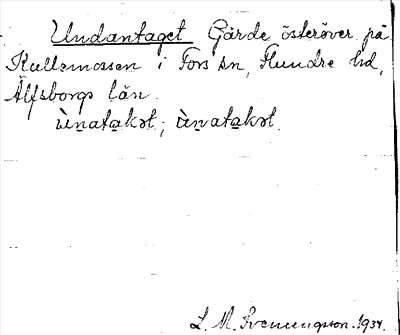 Undantaget Gärde österöver på
Kullsmossen i Fors sn, Flundre hd,
Älfsborgs län.
ùnatakət; ùnatakət.
L. M. Svenungsson. 1934.